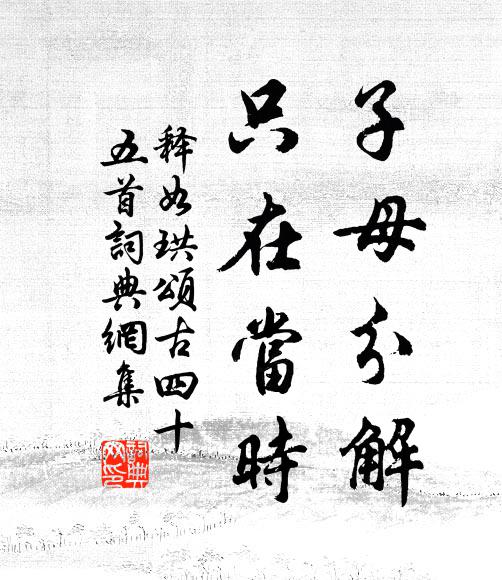 子母分解
只在當時
釋如珙頌古四十
五首詞典網集